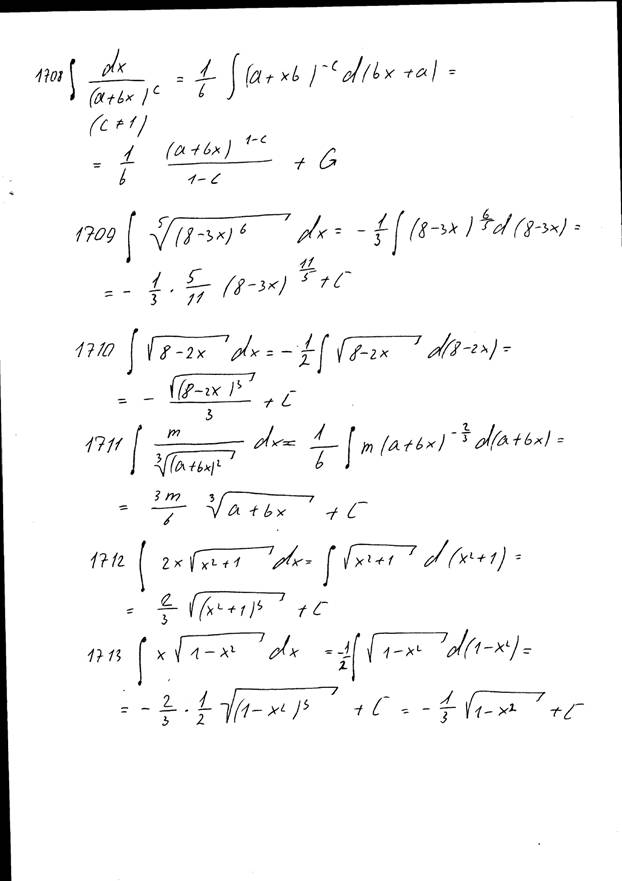 1708 ∫ dx/(a+bx)^c = 1/b ∫ (a+xb)^-c d(bx+a) =
(c≠1)
= 1/b (a+bx)^1-c/1-c + G
1709 ∫ ⁵√(8-3x)^6 dx = -1/3 ∫ (8-3x)^6/5 d(8-3x) =
= -1/3 · 5/11 (8-3x)^11/5 + C
1710 ∫ √8-2x dx = -1/2 ∫ √8-2x d(8-2x) =
= - √(8-2x)^3/3 + C
1711 ∫ m/³√(a+bx)^2 dx = 1/b ∫ m(a+bx)^-2/3 d(a+bx) =
= 3m/b ³√a+bx + C
1712 ∫ 2x√x²+1 dx = ∫ √x²+1 d(x²+1) =
= 2/3 √(x²+1)^3 + C
1713 ∫ x√1-x² dx = -1/2 ∫ √1-x² d(1-x²) =
= -2/3 · 1/2 √(1-x²)^3 + C = -1/3 √1-x² + C